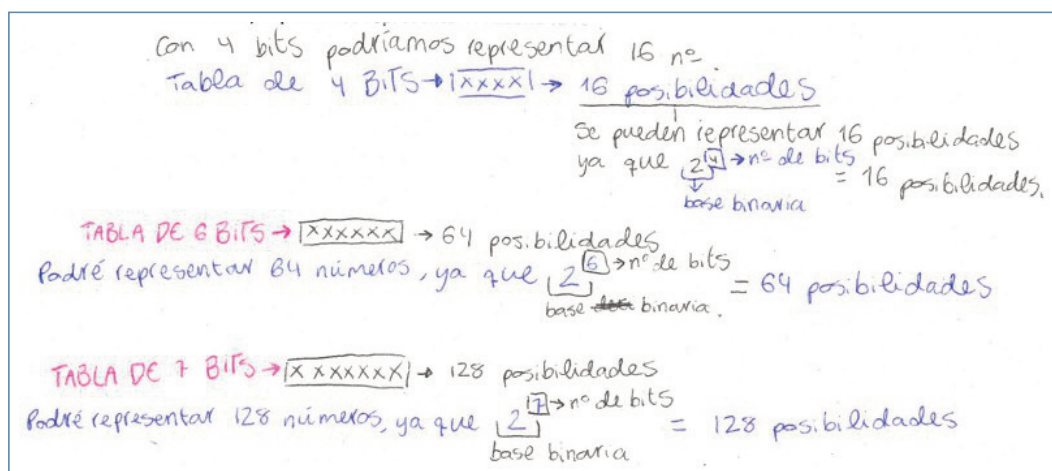 Con 4 bits podríamos representar 16 nº.
Tabla de 4 BITS → |xxxx| → 16 posibilidades
Se pueden representar 16 posibilidades
ya que 2^4 → nº de bits = 16 posibilidades.
base binaria
TABLA DE 6 BITS → |xxxxxx| → 64 posibilidades
Podré representar 64 números, ya que 2^6 → nº de bits = 64 posibilidades
base binaria.
TABLA DE 7 BITS → |xxxxxxx| → 128 posibilidades
Podré representar 128 números, ya que 2^7 → nº de bits = 128 posibilidades
base binaria